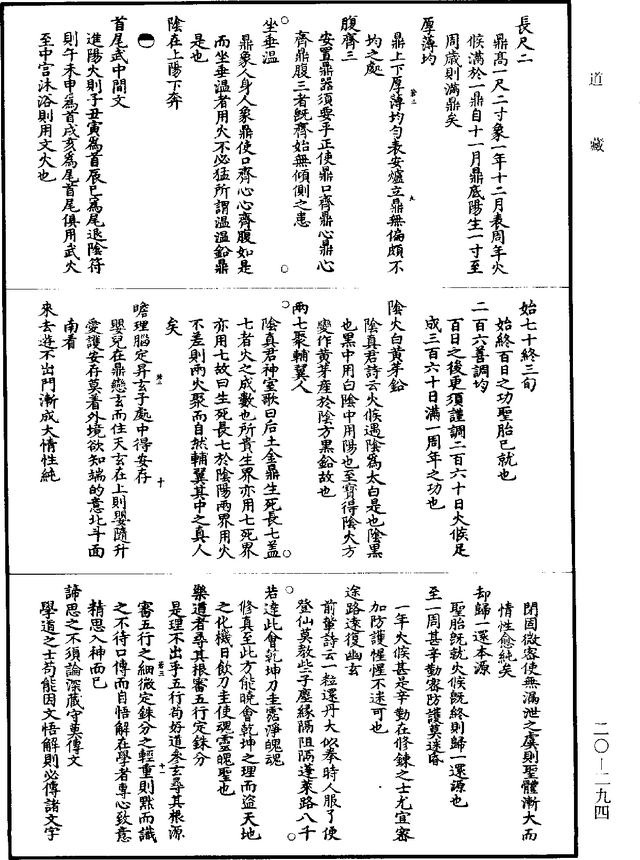 道藏
長尺二
鼎高一尺二寸象一年十二月表周年火
候滿於一鼎自十一月鼎底陽生一寸至
周歲則滿鼎矣
厚薄均
鼎上下厚薄均勻表安爐立鼎無偏頗不
均之處
腹齊三
安置鼎器須要平正使鼎口齊鼎心鼎心
齊鼎腹三者既齊始無傾側之患
坐垂溫
鼎象人身人象鼎使口齊心心齊腹如是
而坐垂溫者用火不必猛所謂溫溫鉛鼎
是也
陰在上陽下奔
首尾武中間文
進陽火則子丑寅為首辰巳為尾退陰符
則午未申為首戌亥為尾首尾俱用武火
至中宮沐浴則用文火也
始七十終三旬
始終百日之功聖胎已就也
二百六善調均
百日之後更須謹調二百六十日火候足
成三百六十日滿一周年之功也
陰火白黃芽鉛
陰真君詩云火候遇陰為太白是也陰黑
也黑中用白陰中用陽也至寶得陰火方
變作黃芽產於陰方黑鉛故也
兩七聚輔翼人
陰真君神室歌曰后土金鼎生死長七蓋
七者火之成數也所貴生界亦用七死界
亦用七故曰生死長七於陰陽兩界用火
不差則兩火聚而自然輔翼其中之真人
矣
瞻理腦定昇玄子處中得安存
嬰兒在鼎戀玄而住天玄在上則嬰隨升
愛護安存莫着外境欲知端的意北斗面
南看
來去遊不出門漸成大情性純
閉固微密使無漏泄之虞則聖體漸大而
情性愈純矣
却歸一還本源
聖胎既就火候既終則歸一還源也
至一周甚辛勤密防護莫迷昏
一年火候甚是辛勤在修鍊之士尤宜審
加防護惺惺不迷可也
途路遠復幽玄
前輩詩云一粒還丹大似拳時人服了便
登仙莫教些子塵緣隔阻隔蓬萊路八千
若達此會乾坤刀圭霑淨魄魂
修真至此方能曉會乾坤之理而盜天地
之化機日飲刀圭使魂靈魄聖也
樂道者尋其根審五行定銖分
是理不出乎五行苟好道參玄尋其根源
審五行之細微定銖分之輕重則默而識
之不待口傳而自悟解在學者專心致意
精思入神而已
諦思之不須論深藏守莫傳文
學道之士苟能因文悟解則必傳諸文字
二〇—二九四